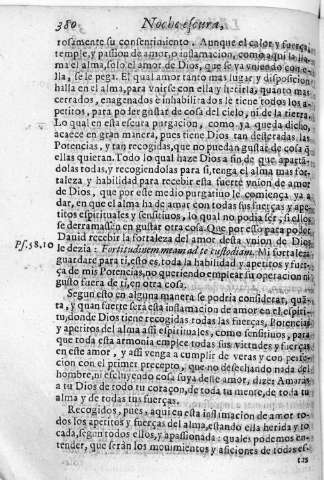 380 Noche escura,
rosamente su consentimiento. Aunque el calor y fuerça,
temple, y passion de amor, o inflamacion, como aqui la lla-
ma el alma, solo el amor de Dios, que se va vniendo con e-
lla, se le pega. El qual amor tanto mas lugar, y disposicion
halla en el alma, para vnirse con ella y herirla, quanto mas
cerrados, enagenados è inhabilitados le tiene todos los a-
petitos, para poder gustar de cosa del cielo, ni de la tierra.
Lo qual en esta escura purgacion, como ya queda dicho,
acaece en gran manera, pues tiene Dios tan destetadas las
Potencias, y tan recogidas, que no puedan gustar de cosa q̃
ellas quieran. Todo lo qual haze Dios a fin de que apartã-
dolas todas, y recogiendolas para si, tenga el alma mas for-
taleza y habilidad para recebir esta fuerte vnion de amor
de Dios, que por este medio purgatiuo le comiença ya a
dar, en que el alma ha de amar con todas sus fuerças y ape-
titos espirituales y sensitiuos, lo qual no podia ser, si ellos
se derramassen en gustar otra cosa. Que por esso para poder
Dauid recebir la fortaleza del amor desta vnion de Dios
Ps. 58. 10 le dezia: Fortitudinem meam ad te custodiam. Mi fortaleza
guardarè para ti, esto es, toda la habilidad y apetitos y fuer-
ça de mis Potencias, no queriendo emplear su operacion ni
gusto fuera de ti, en otra cosa.
Segun esto en alguna manera se podria considerar, quã-
ta, y quan fuerte serà esta inflamacion de amor en el espiri-
tu, donde Dios tiene recogidas todas las fuerças, Potencias
y apetitos del alma assi espirituales, como sensitiuos, para
que toda esta armonia emplee todas sus virtudes y fuerças
en este amor, y assi venga a cumplir de veras y con perfe-
cion con el primer precepto, que no desechando nada del
hombre, ni escluyendo cosa suya deste amor, dize: Amaràs
a tu Dios de todo tu coraçon, de toda tu mente, de toda tu
alma y de todas tus fuerças.
Recogidos, pues, aqui en esta inflamacion de amor to-
dos los apetitos y fuerças del alma, estando ella herida y to-
cada, segun todos ellos, y apassionada: quales podemos en-
tender, que seràn los mouimientos y aficiones de todas es-
tas